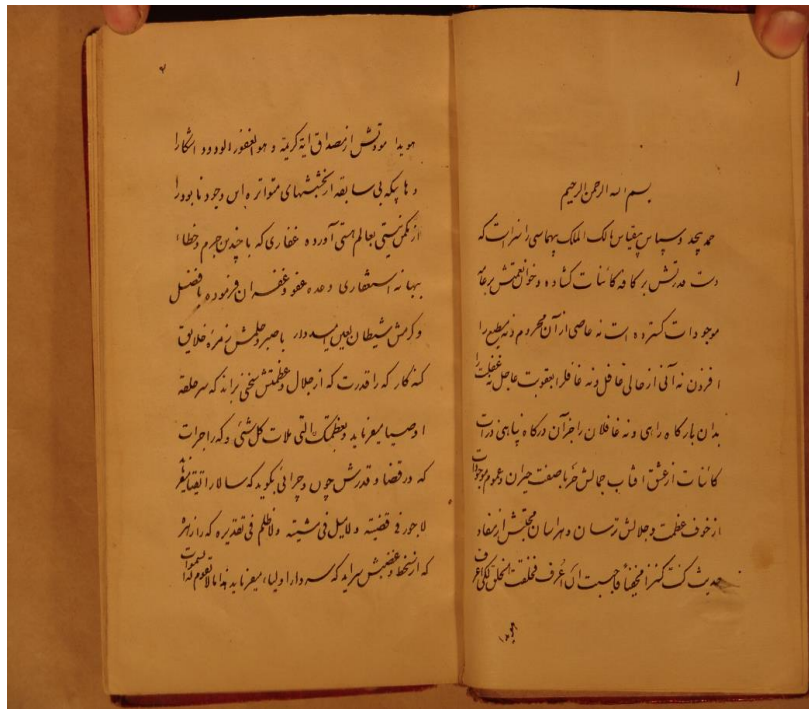 ۱
بسم الله الرحمن الرحیم
حمد بیحد و سپاس بیقیاس مالک الملک بیهماسی را سزاست که
دست قدرتش بر کافه کائنات کشاده و خوان نعمتش بر عامه
موجودات کسترده است نه عاصی از آن محروم و نه مطیع را
افزون نه آنی از حالی غافل و نه غافلرا بعقوبت عاجل نه غفلت را
بدان بارکاه راهی و نه غافلان را جز آن درکاه پناهی ذرات
کائنات از عشق افتاب جمالش حربا صفت حیران و عموم موجودات
از خوف عظمت و جلالش ترسان و هراسان محبتش از مفاد
حدیث کنت کنزا مخفیا فاحببت ان اعرف فخلقت الخلق لکی اعرف
هویدا
هویدا مودتش از مصداق ایة کریمه و هو الغفور الودود اشکارا
وهابیکه بی سابقه از بخششهای متواتره اس وجود نابود را
از مکمن نیستی بعالم هستی آورده غفاری که با چندین جرم و خطا
ببهانه استغفاری وعده عفو و غفران فرموده با فضل
و کرمش شیطان لعین امیدوار با صبر و حلمش زمره خلایق
کنه کار که را قدرت که از جلال و عظمتش سخنی براند که سر حلقه
اوصیا میفرماید و بعظمتک التی ملات کل شئی و که را جرات
که در قضا و قدرش چون و چرائی بکوید که سالار اتقیا میفرماید
لا جور فی قضیته و لا میل فی مشیته و لا ظلم فی تقدیره که را زهره
که از سخط و غضبش سراید که سردار اولیاء میفرماید هذا ما لا تقوم له السموات